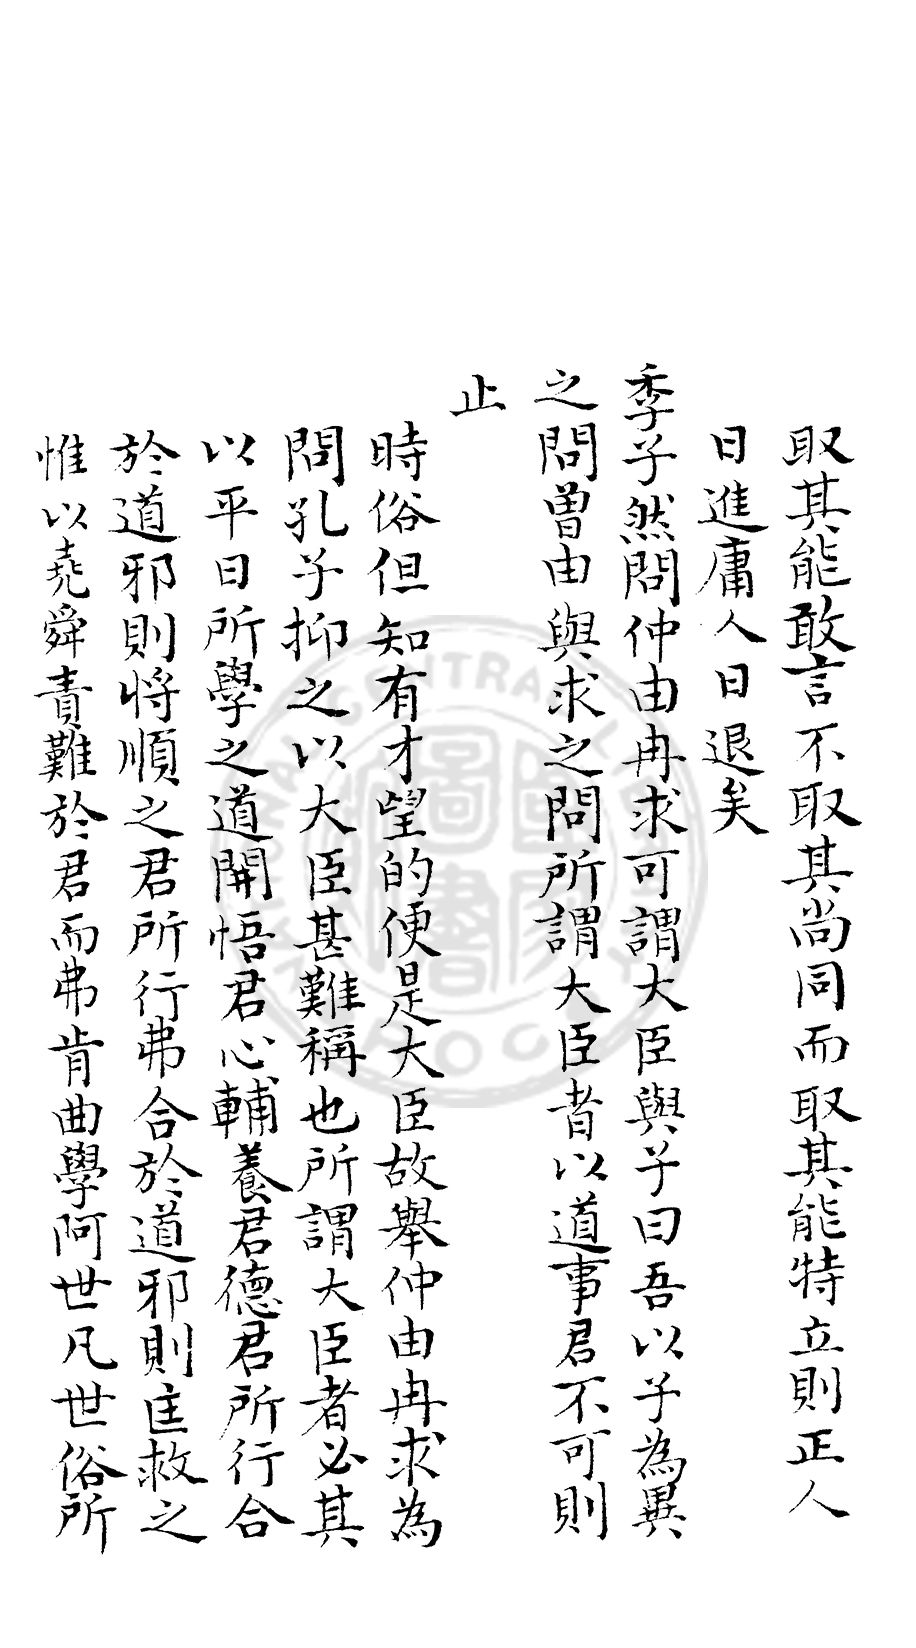 取其能敢言不取其尚同而取其能特立則正人
日進庸人日退矣
季子然問仲由冉求可謂大臣與子曰吾以子為異
之問曾由與求之問所謂大臣者以道事君不可則
止
時俗但知有才望的便是大臣故舉仲由冉求為
問孔子抑之以大臣甚難稱也所謂大臣者必其
以平日所學之道開悟君心輔養君德君所行合
於道邪則將順之君所行弗合於道邪則匡救之
惟以堯舜責難於君而弗肯曲學阿世凡世俗所